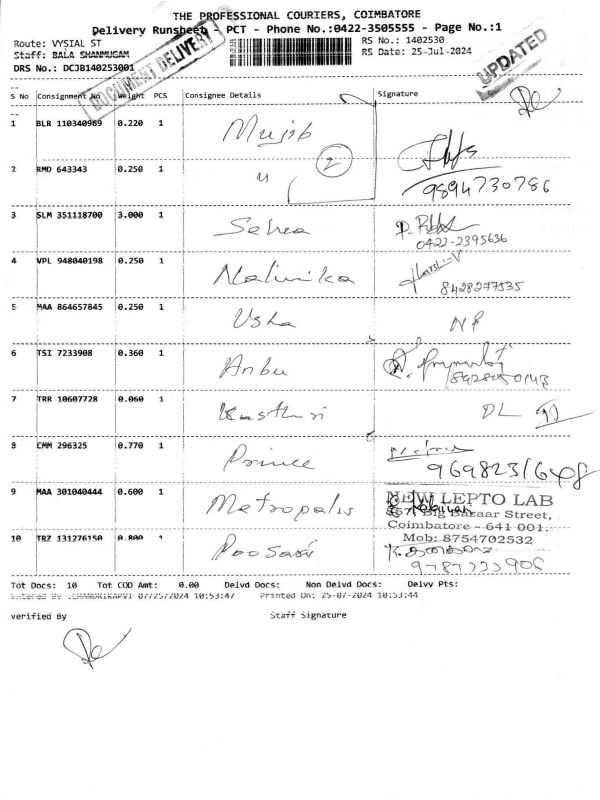 THE PROFESSIONAL COURIERS, COIMBATORE
Delivery Runsheet - PCT - Phone No.:0422-3505555 - Page No.:1
Route: VYSIAL ST
RS No.: 1402530
Staff: BALA SHANMUGAM
RS Date: 25-Jul-2024
DRS No.: DCJB140253001
DOCUMENT DELIVERY
UPDATED
S No Consignment No Weight PCS Consignee Details Signature
1 BLR 110340969 0.220 1 Mujib
2 RMD 643343 0.250 1 " 2 9894730786
3 SLM 351118700 3.000 1 Selvea
0422-2395636
4 VPL 948040198 0.250 1 Nalinika
8428277535
5 MAA 864657845 0.250 1 Usha
6 TSI 7233908 0.360 1 Anbu
7 TRR 10607728 0.060 1 DL
8 CMM 296325 0.770 1 Prince
9 MAA 301040444 0.600 1 Metropalis
NEW LEPTO LAB
Big Bazaar Street,
Coimbatore - 641 001.
Mob: 8754702532
10 TRZ 131276150 0.800 1 Poosari
Tot Docs: 10 Tot COD Amt: 0.00 Delvd Docs: Non Delvd Docs: Delvy Pts:
Entered By :CHANDRIKAPV1 07/25/2024 10:53:47 Printed On: 25-07-2024 10:53:44
verified By Staff Signature